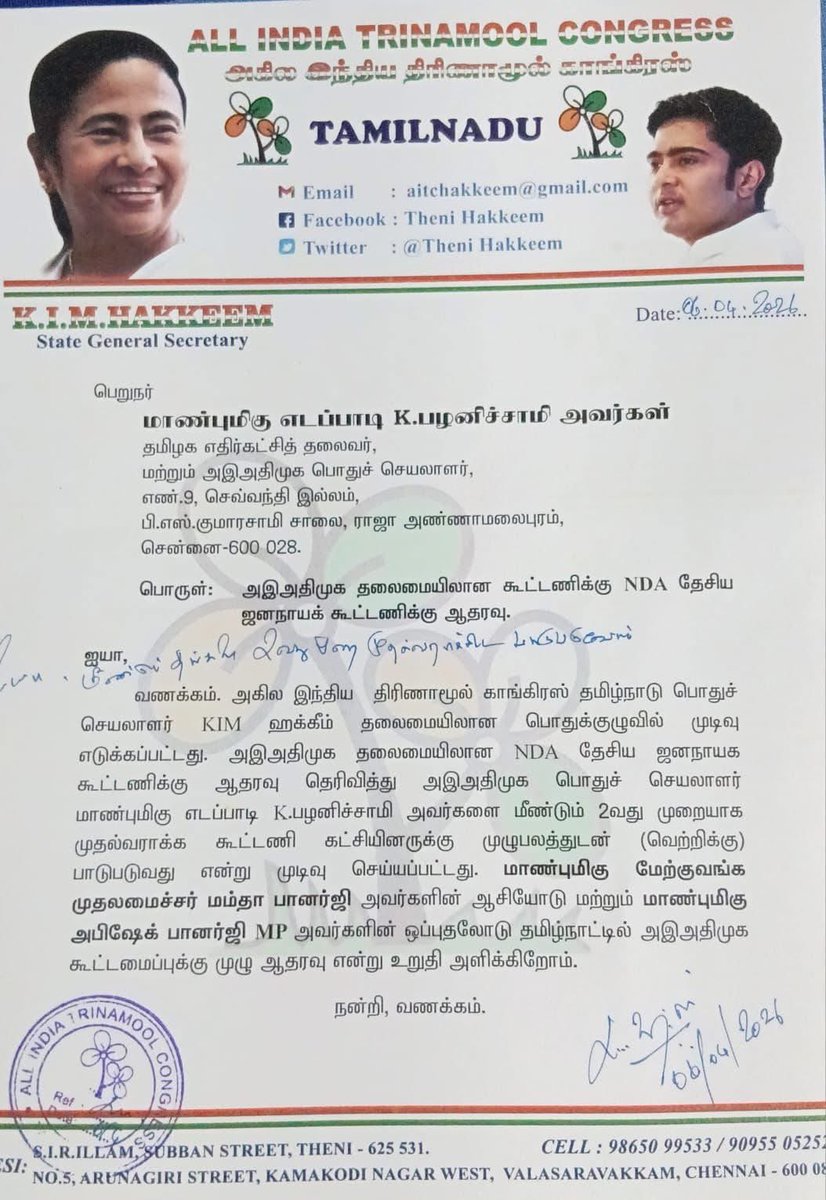 ALL INDIA TRINAMOOL CONGRESS
அகில இந்திய திரிணாமூல் காங்கிரஸ்
TAMILNADU
Email : aitchakkeem@gmail.com
Facebook : Theni Hakkeem
Twitter : @Theni Hakkeem
K.I.M.HAKKEEM
State General Secretary
Date: 06.04.2026
பெறுநர்
மாண்புமிகு எடப்பாடி K.பழனிச்சாமி அவர்கள்
தமிழக எதிர்கட்சித் தலைவர்,
மற்றும் அஇஅதிமுக பொதுச் செயலாளர்,
எண்.9, செவ்வந்தி இல்லம்,
பி.எஸ்.குமாரசாமி சாலை, ராஜா அண்ணாமலைபுரம்,
சென்னை-600 028.
பொருள்: அஇஅதிமுக தலைமையிலான கூட்டணிக்கு NDA தேசிய
ஜனநாயக் கூட்டணிக்கு ஆதரவு.
ஐயா,
வணக்கம். அகில இந்திய திரிணாமூல் காங்கிரஸ் தமிழ்நாடு பொதுச்
செயலாளர் KIM ஹக்கீம் தலைமையிலான பொதுக்குழுவில் முடிவு
எடுக்கப்பட்டது. அஇஅதிமுக தலைமையிலான NDA தேசிய ஜனநாயக
கூட்டணிக்கு ஆதரவு தெரிவித்து அஇஅதிமுக பொதுச் செயலாளர்
மாண்புமிகு எடப்பாடி K.பழனிச்சாமி அவர்களை மீண்டும் 2வது முறையாக
முதல்வராக்க கூட்டணி கட்சியினருக்கு முழுபலத்துடன் (வெற்றிக்கு)
பாடுபடுவது என்று முடிவு செய்யப்பட்டது. மாண்புமிகு மேற்குவங்க
முதலமைச்சர் மம்தா பானர்ஜி அவர்களின் ஆசியோடு மற்றும் மாண்புமிகு
அபிஷேக் பானர்ஜி MP அவர்களின் ஒப்புதலோடு தமிழ்நாட்டில் அஇஅதிமுக
கூட்டமைப்புக்கு முழு ஆதரவு என்று உறுதி அளிக்கிறோம்.
நன்றி, வணக்கம்.
06/04/2026
ALL INDIA TRINAMOOL CONGRESS
Ref
Date
S.I.R.ILLAM, SUBBAN STREET, THENI - 625 531.
CELL : 98650 99533 / 90955 05252
ESI:
NO.5, ARUNAGIRI STREET, KAMAKODI NAGAR WEST, VALASARAVAKKAM, CHENNAI - 600 08